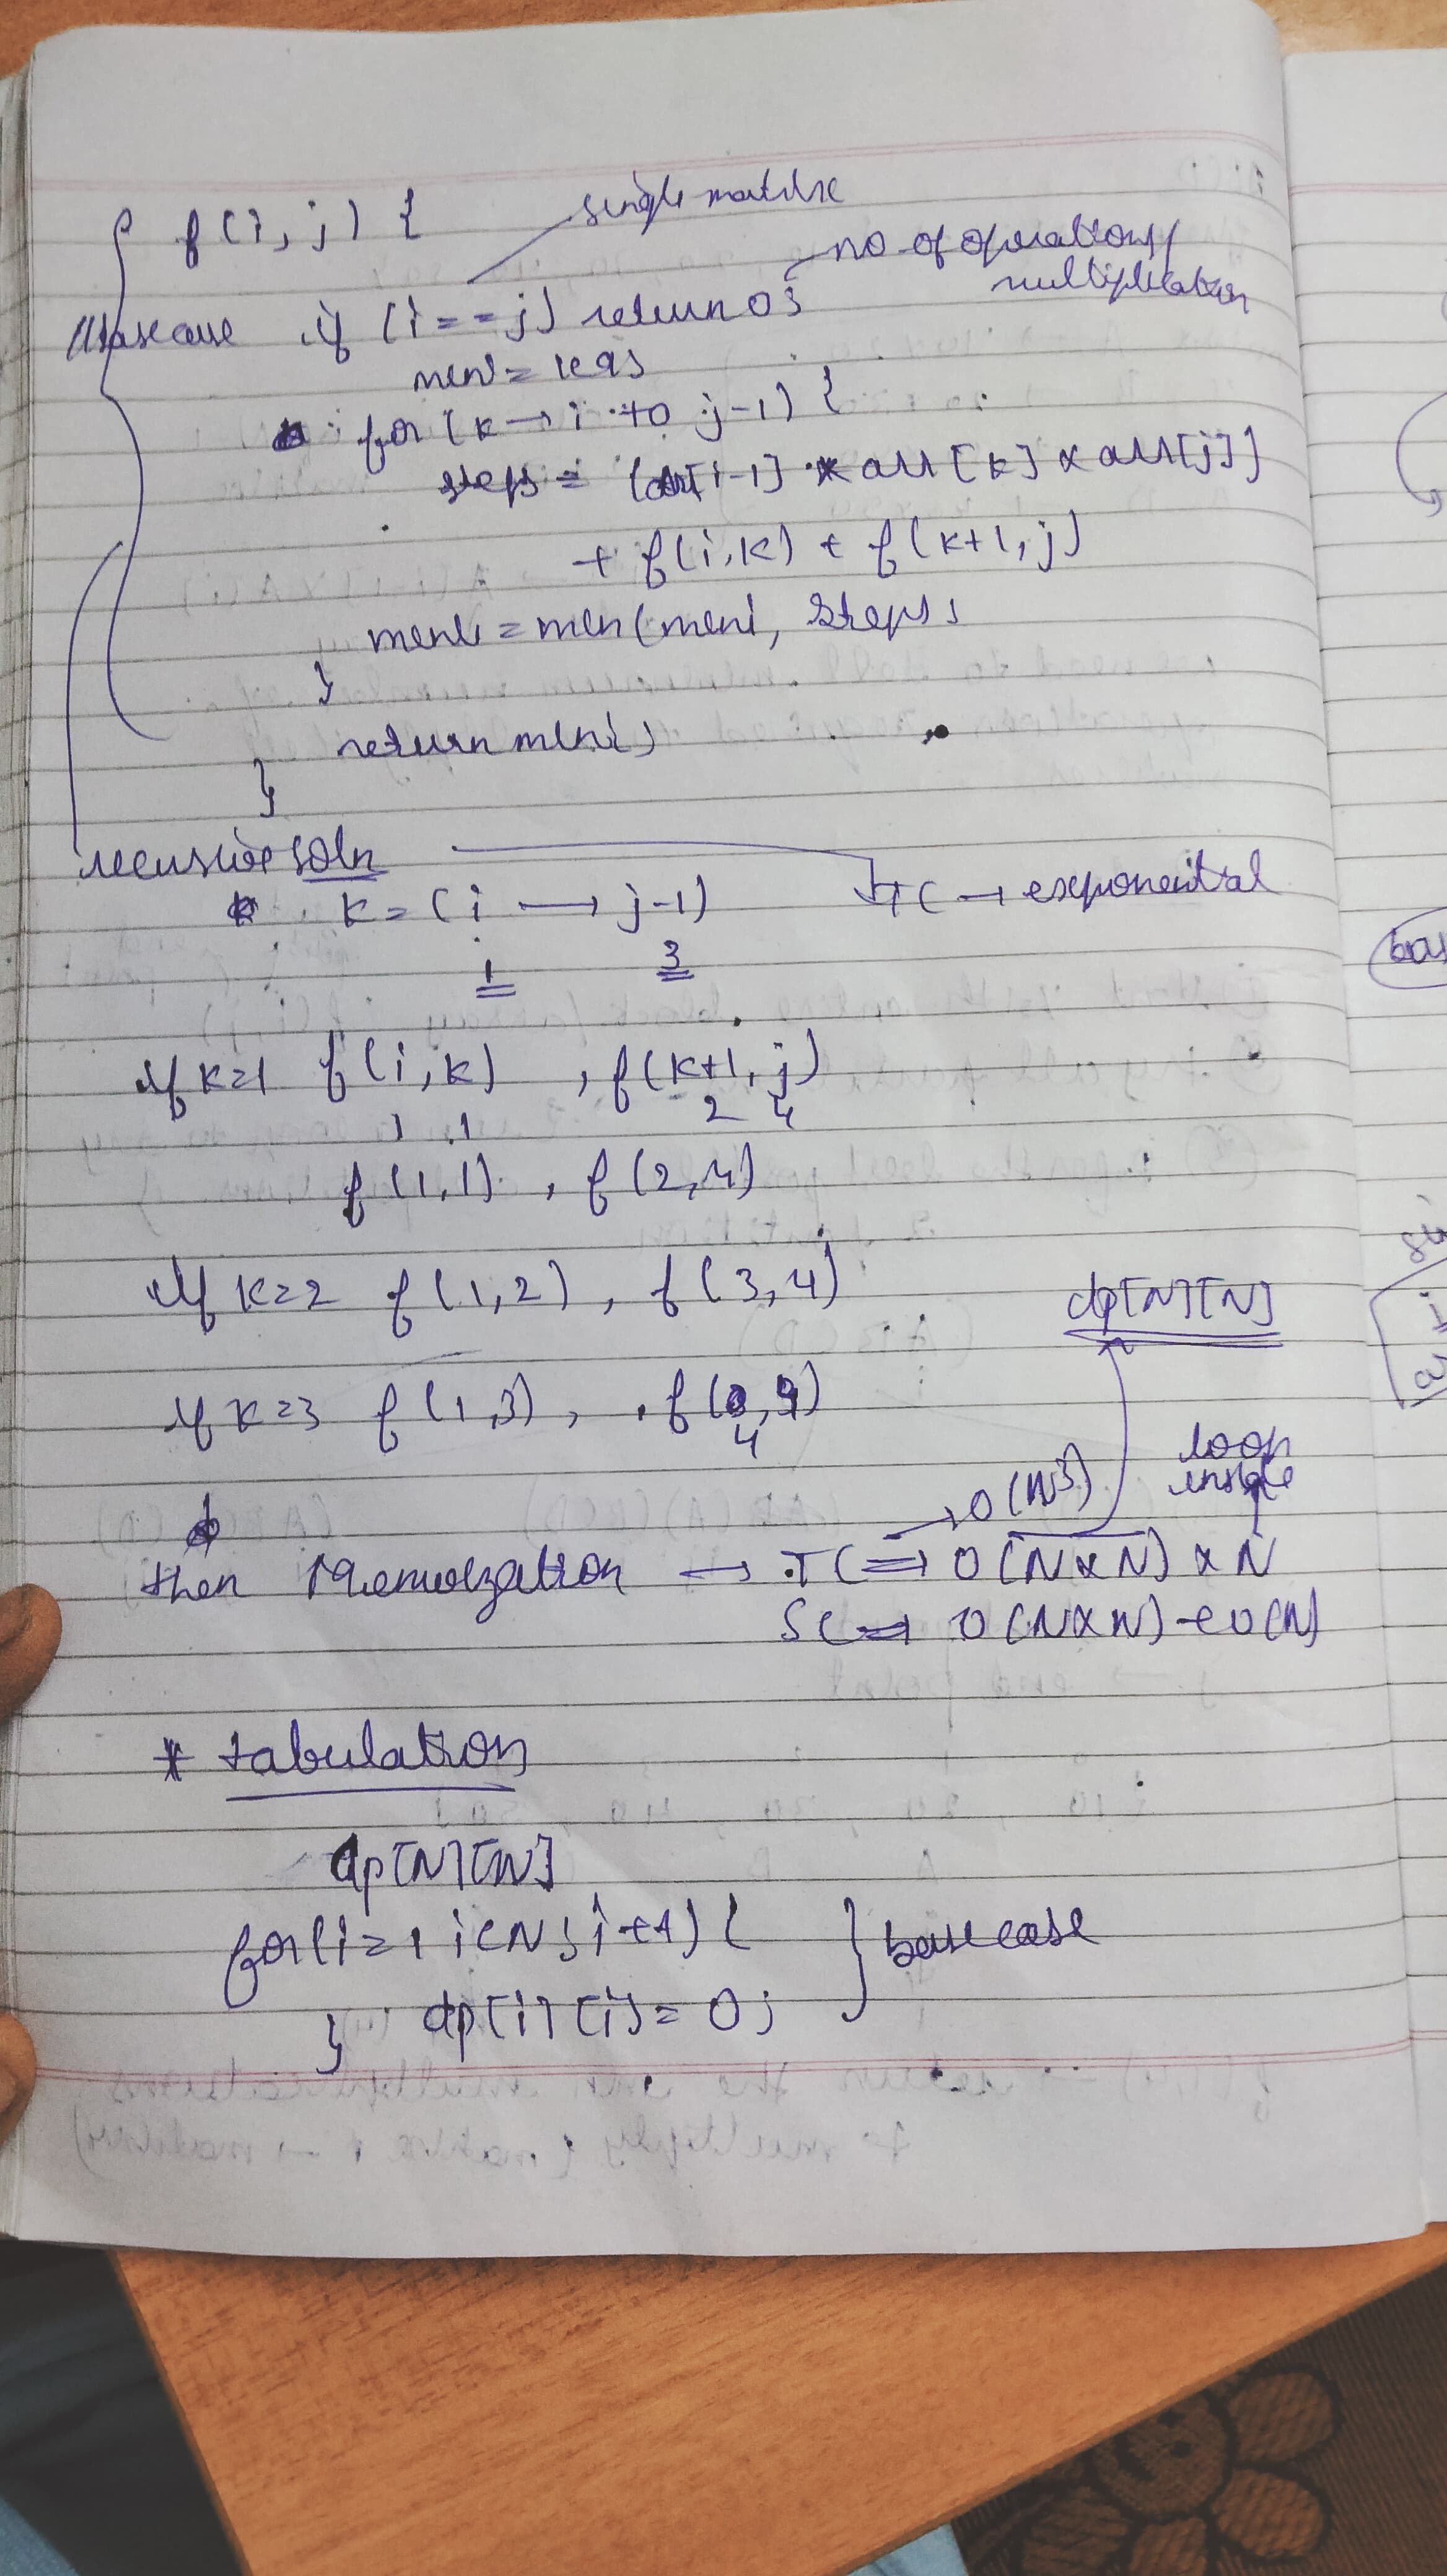 f(i, j) {
single matrix
no of operations/
multiplication
// base case if (i == j) return 0;
mini = 1e9;
for (k → i to j-1) {
steps = (arr[i-1] * arr[k] × arr[j])
+ f(i,k) + f(k+1, j)
mini = min(mini, steps);
}
return mini;
}
recursive soln
TC → exponential
k = (i → j-1)
1 3
if k=1 f(i,k) , f(k+1, j)
1 1 2 4
f(1,1) , f(2,4)
if k=2 f(1,2), f(3,4)
dp[N][N]
if k=3 f(1,3), f( ,4)
4
loop
inside
→ O(N³)
then Memoization → TC ⇒ O(N×N) × N
SC ⇒ O(N×N) + O(N)
* tabulation
dp[N][N]
for(i=1 i<N; i++) {
base case
} dp[i][i] = 0;